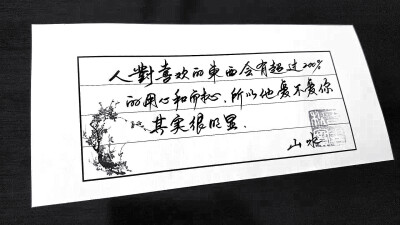 人對喜欢的東西会有超过200%
的用心和耐心，所以他爱不爱你
其实很明显．
山